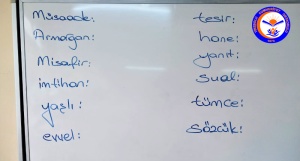 Müsaade:
Armağan:
Misafir:
imtihan:
yaşlı:
evvel:
tesir:
hane:
yanıt:
sual:
tümce:
sözcük: